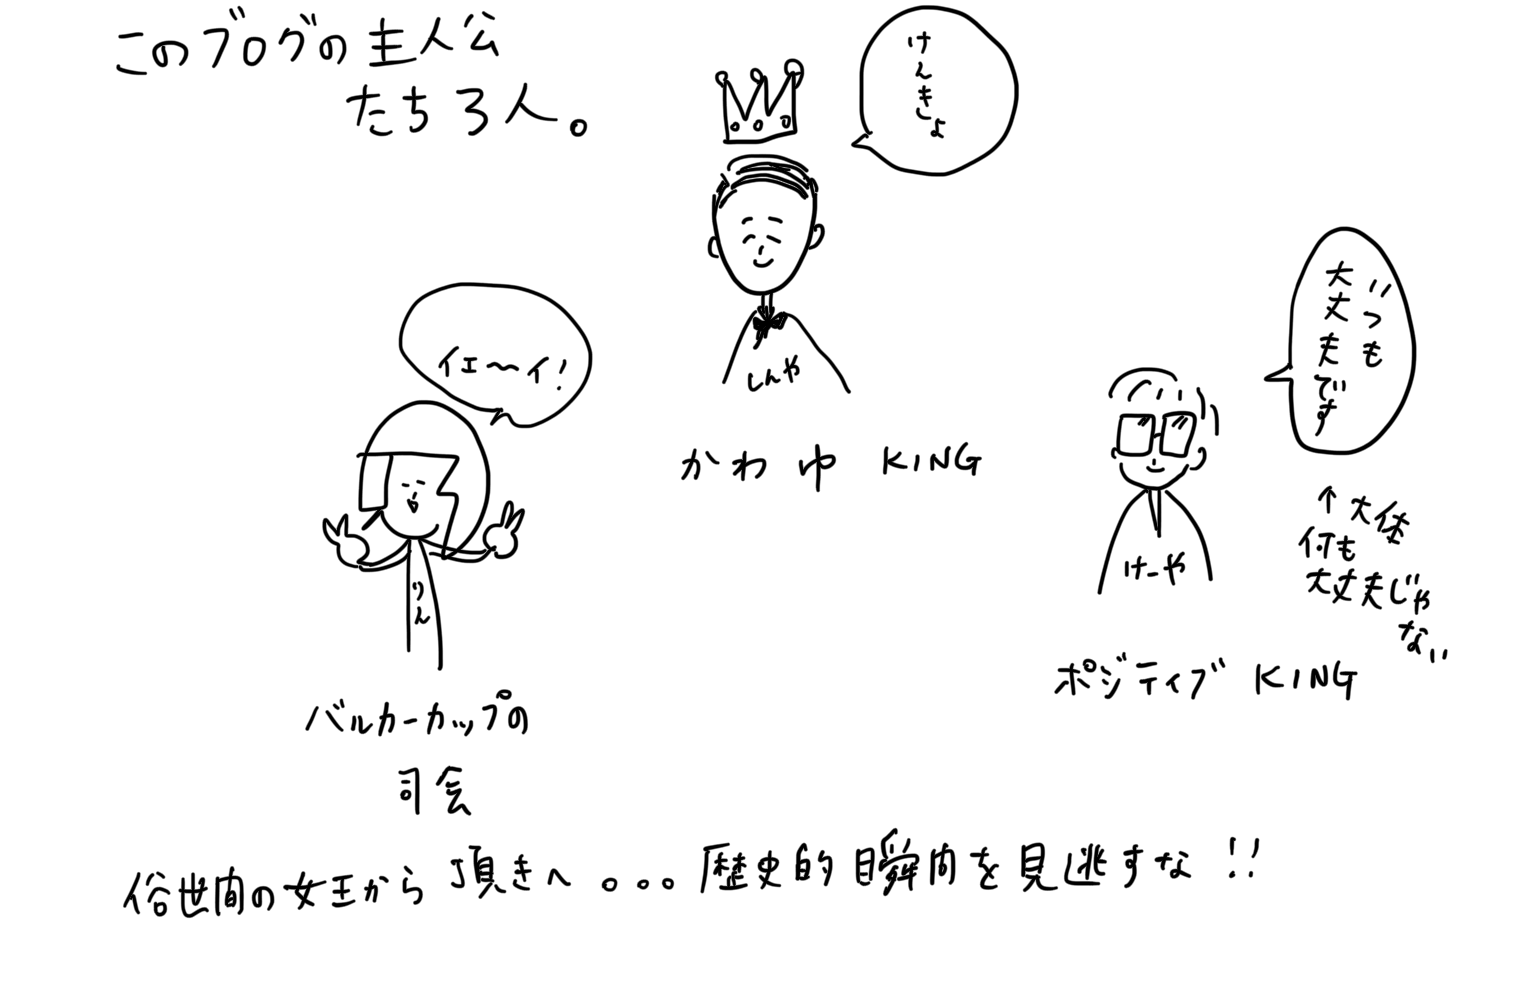 このブログの主人公
たち3人。
けんきょ
しんや
かわゆKING
イエ〜イ!
りん
バルカーカップの
司会
いつも
大丈夫です
けーや
↑大体
何も
大丈夫じゃ
ない
ポジティブKING
俗世間の女王から頂きへ。。。歴史的瞬間を見逃すな!!